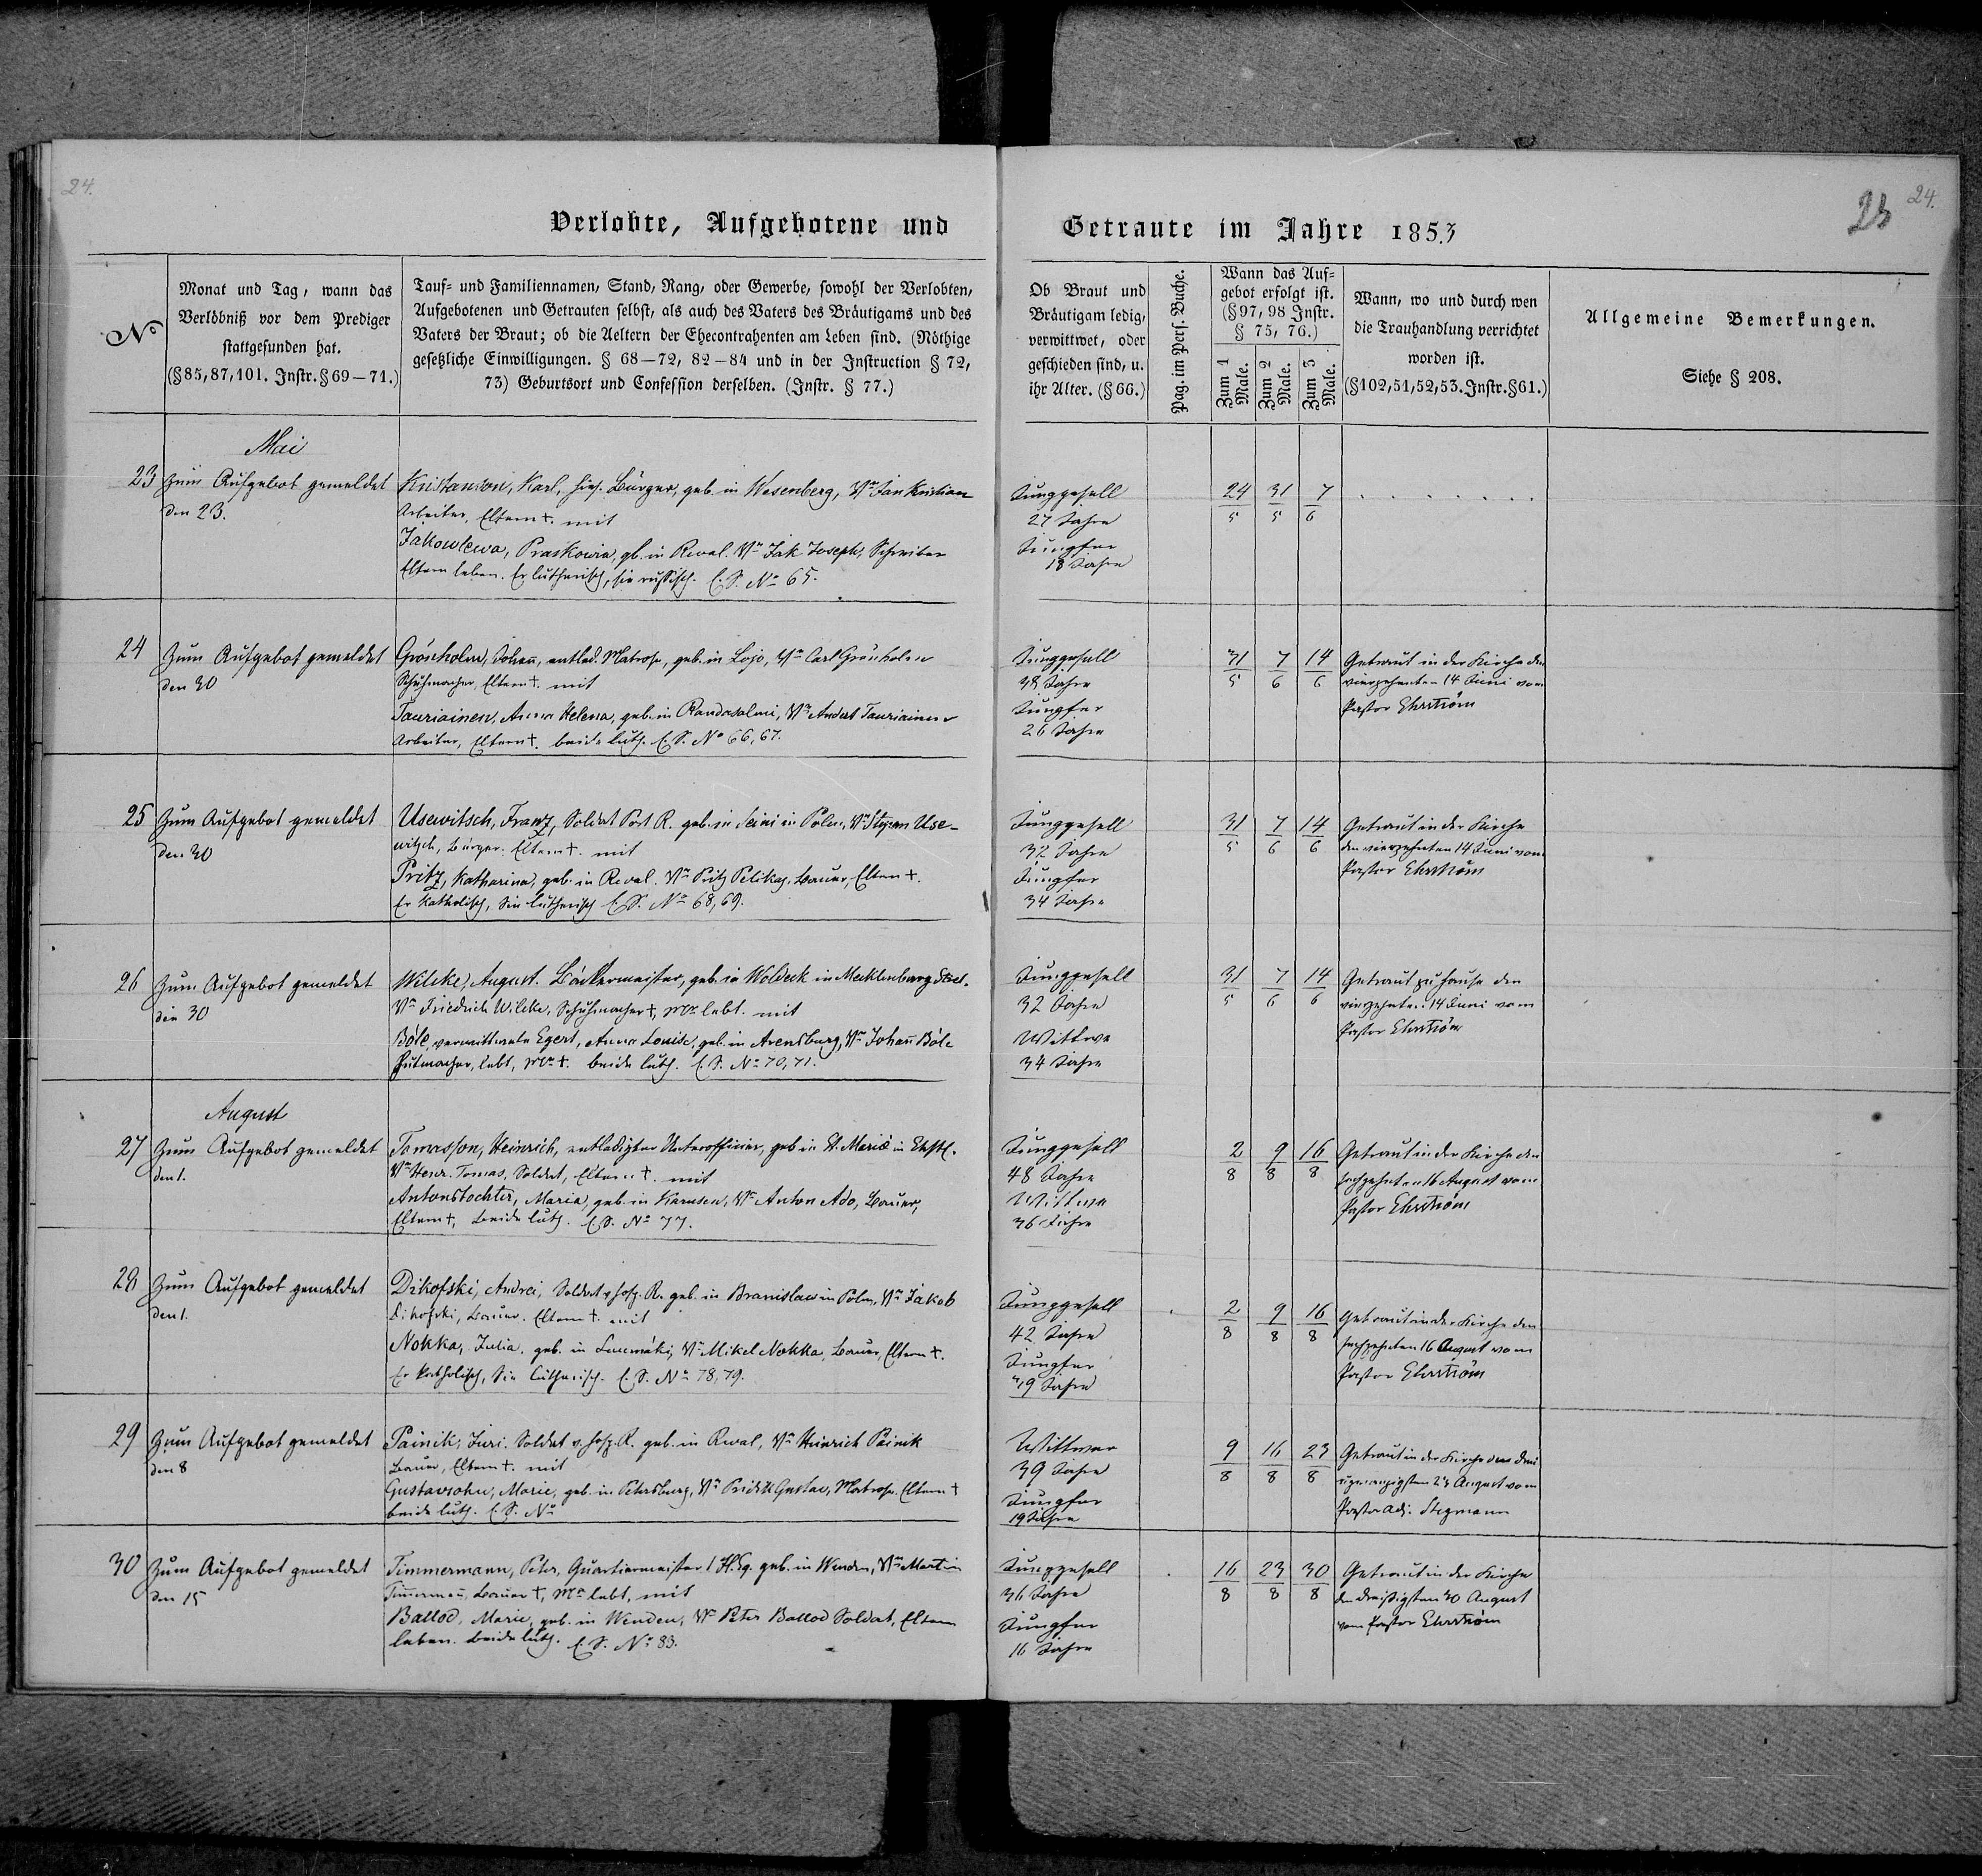 24.
24.
23
Verlobte, Aufgebotene und Getraute im Jahre 1853
No
Monat und Tag, wann das
Verlöbniß vor dem Prediger
stattgefunden hat.
(§85, 87, 101. Instr. §69–71.)
Tauf- und Familiennamen, Stand, Rang, oder Gewerbe, sowohl der Verlobten,
Aufgebotenen und Getrauten selbst, als auch des Vaters des Bräutigams und des
Vaters der Braut; ob die Aeltern der Ehecontrahenten am Leben sind. (Nöthige
gesetzliche Einwilligungen. § 68–72, 82–84 und in der Instruction § 72,
73) Geburtsort und Confession derselben. (Instr. § 77.)
Ob Braut und
Bräutigam ledig,
verwittwet, oder
geschieden sind, u.
ihr Alter. (§66.)
Pag. im Pers. Buche.
Wann das Auf-
gebot erfolgt ist.
(§97, 98 Instr.
§ 75, 76.)
Zum 1 Male.
Zum 2 Male.
Zum 3 Male.
Wann, wo und durch wen
die Trauhandlung verrichtet
worden ist.
(§102, 51, 52, 53. Instr. §61.)
Allgemeine Bemerkungen.
Siehe § 208.
Mai
23 Zum Aufgebot gemeldet
den 23.
Kristanson, Karl, hies. Bürger, geb. in Wesenberg, Vr Jan Kristian
Arbeiter, Eltern †. mit
Jakowlewa, Praskowia, gb. in Reval. Vr Jak Joseph, Schreiber
Eltern leben. Er lutherisch, sie russisch. E. S. No 65.
Junggesell
27 Jahre
Jungfer
18 Jahre
24/5 31/5 7/6 . . . . . . .
24 Zum Aufgebot gemeldet
den 30
Grönholm, Johan, entlad. Matrose, geb. in Lojo, Vr Carl Grönholm
Schuhmacher, Eltern †. mit
Tauriainen, Anna Helena, geb. in Randasalmi, Vr Anders Tauriainen
Arbeiter, Eltern †. beide luth. E. S. No 66, 67.
Junggesell
38 Jahre
Jungfer
26 Jahre
31/5 7/6 14/6
Getraut in der Kirche den
vierzehnten 14 Juni vom
Pastor Ehrström
25 Zum Aufgebot gemeldet
den 30
Usewitsch, Franz, Soldat Port R. geb. in Seini in Polen, Vr Stepan Use-
witsch, Bürger. Eltern †. mit
Pritz, Katharina, geb. in Reval. Vr Pritz Pelikas, Bauer, Eltern †.
Er katholisch, Sie lutherisch E. S. No 68, 69.
Junggesell
32 Jahre
Jungfer
34 Jahre
31/5 7/6 14/6
Getraut in der Kirche
den vierzehnten 14 Juni vom
Pastor Ehrström
26 Zum Aufgebot gemeldet
den 30
Wilcke, August. Bäckermeister, geb. in Woldeck in Mecklenburg Strel.
Vr Friedrich Wilcke, Schuhmacher †, Mr lebt. mit
Böle, verwittwete Egert, Anna Louise, geb. in Arensburg, Vr Johan Böle
Hutmacher, lebt, Mr †. beide luth. E. S. No 70, 71.
Junggesell
32 Jahre
Wittwe
34 Jahre
31/5 7/6 14/6
Getraut zu Hause den
vierzehnten 14 Juni vom
Pastor Ehrström
August
27 Zum Aufgebot gemeldet
den 1.
Tomasson, Heinrich, entledigter Unterofficier, geb in St. Mariä in Ehstl.
Vr Henr. Tomas, Soldat, Eltern †. mit
Antonstochter, Maria, geb. in Karusen, Vr Anton Ado, Bauer,
Eltern †, beide luth. E. S. No 77.
Junggesell
48 Jahre
Wittwe
36 Jahre
2/8 9/8 16/8
Getraut in der Kirche den
sechzehnten 16 August vom
Pastor Ehrström
28 Zum Aufgebot gemeldet
den 1.
Dikofski, Andrei, Soldat v. Hosp. R. geb. in Branislaw in Polen, Vr Jakob
Dikofski, Bauer. Eltern †. mit
Nokka, Julia. geb. in Vr Mikel Nokka, Bauer, Eltern †.
Er katholisch, Sie lutherisch. E. S. No 78, 79.
Junggesell
42 Jahre
Jungfer
19 Jahre
2/8 9/8 16/8
Getraut in der Kirche den
sechzehnten 16 August vom
Pastor Ehrström
29 Zum Aufgebot gemeldet
den 8
Painik, Juri. Soldat v. Hosp. R. geb. in Reval, Vr Heinrich Painik
Bauer, Eltern †. mit
Gustavsohn, Marie, geb. in Petersburg, Vr Pridik Gustav, Matrose. Eltern †
beide luth. E. S. No
Wittwer
39 Jahre
Jungfer
19 Jahre
9/8 16/8 23/8
Getraut in der Kirche den drei
u zwanzigsten 23 August vom
Pastor Adj. Stegmann
30 Zum Aufgebot gemeldet
den 15
Timmermann, Peter, Quartiermeister 1 Fl. Eq. geb. in Wenden, Vr Martin
Timerman, Bauer †, Mr lebt, mit
Ballod, Marie, geb. in Wenden, Vr Peter Ballod Soldat, Eltern
leben. Beide luth. E. S. No 83.
Junggesell
36 Jahre
Jungfer
16 Jahre
16/8 23/8 30/8
Getraut in der Kirche
den dreißigsten 30 August
vom Pastor Ehrström